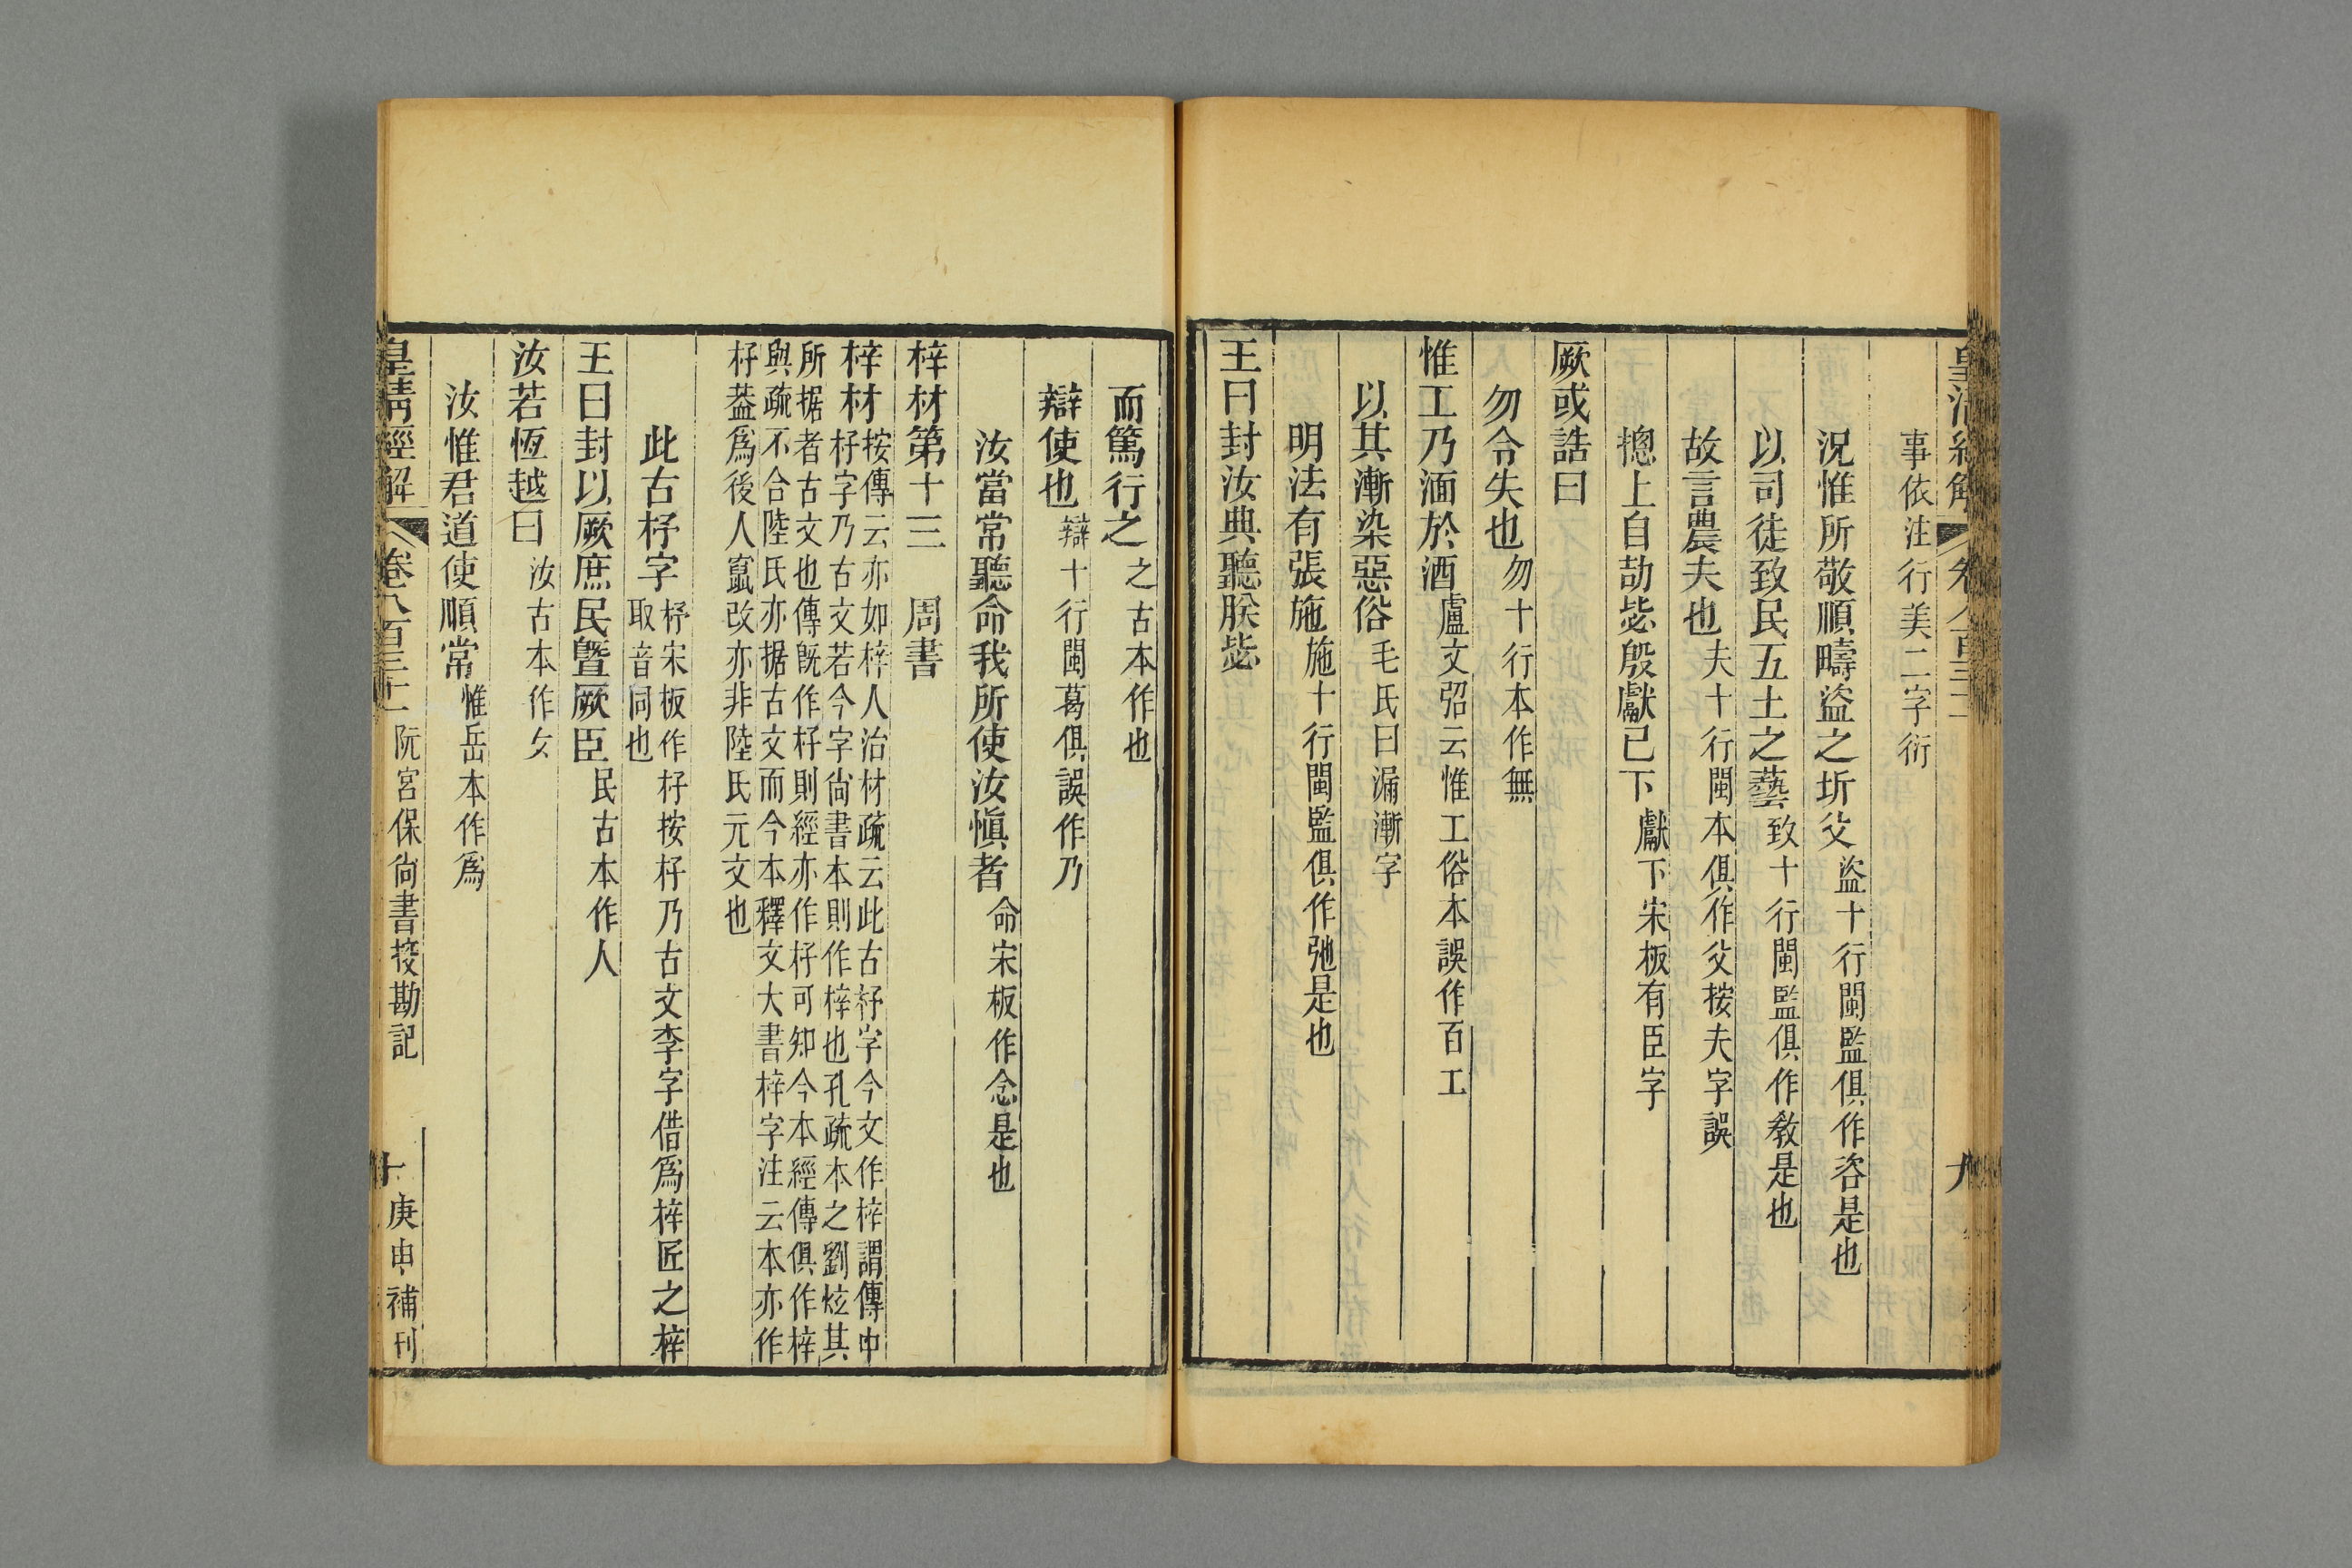 事依注行美二字衍
況惟所敬順疇盜之圻父盜十行閩監俱作咨是也
以司徒致民五土之藝致十行閩監俱作教是也
故言農夫也夫十行閩本俱作父按夫字誤
摠上自劼毖殷獻已下獻下宋板有臣字
厥或誥曰
勿令失也勿十行本作無
惟工乃湎於酒盧文弨云惟工俗本誤作百工
以其漸染惡俗毛氏曰漏漸字
明法有張施施十行閩監俱作弛是也
王曰封汝典聽朕毖
而篤行之之古本作也
辯使也辯十行閩葛俱誤作乃
汝當常聽命我所使汝愼者命宋板作念是也
梓材第十三　周書
梓材按傳云亦如梓人治材疏云此古杍字今文作梓謂傳中
梓材杍字乃古文若今字尙書本則作梓也孔疏本之劉炫其
所据者古文也傳旣作杍則經亦作杍可知今本經傳俱作梓
與疏不合陸氏亦据古文而今本釋文大書梓字注云本亦作
杍葢爲後人竄改亦非陸氏元文也
此古杍字杍宋板作杍按杍乃古文李字借爲梓匠之梓
取音同也
王曰封以厥庶民曁厥臣民古本作人
汝若恆越曰汝古本作女
汝惟君道使順常惟岳本作爲
皇淸經解　卷八百三十一　阮宮保尙書挍勘記　十　庚申補刊